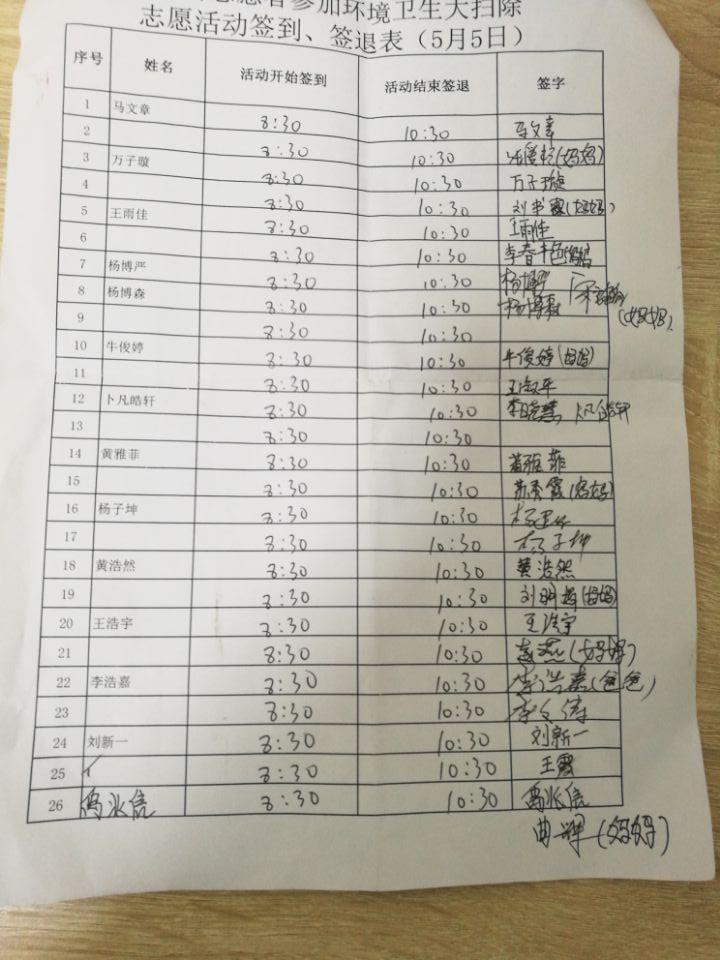 志愿者参加环境卫生大扫除
志愿活动签到、签退表（5月5日）
序号 姓名 活动开始签到 活动结束签退 签字
1 马文章 8:30 10:30 马文章
2 8:30 10:30 (妈妈)
3 万子璇 8:30 10:30 万子璇
4 8:30 10:30 刘书霞(妈妈)
5 王雨佳 8:30 10:30 王雨佳
6 8:30 10:30 李春
7 杨博严 8:30 10:30 杨博严
8 杨博森 8:30 10:30 杨博森 (妈妈)
9 8:30 10:30
10 牛俊婷 8:30 10:30 牛俊婷(妈妈)
11 8:30 10:30 王淑平
12 卜凡皓轩 8:30 10:30 卜凡皓轩
13 8:30 10:30
14 黄雅菲 8:30 10:30 黄雅菲
15 8:30 10:30 苏秀霞(妈妈)
16 杨子坤 8:30 10:30
17 8:30 10:30 杨子坤
18 黄浩然 8:30 10:30 黄浩然
19 8:30 10:30 (妈妈)
20 王浩宇 8:30 10:30 王浩宇
21 8:30 10:30 (妈妈)
22 李浩嘉 8:30 10:30 李浩嘉(爸爸)
23 8:30 10:30
24 刘新一 8:30 10:30 刘新一
25 8:30 10:30 王霞
26 冯兆信 8:30 10:30 冯兆信
曲辉(妈妈)